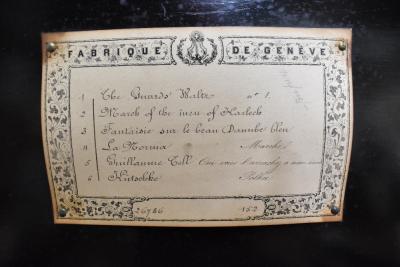 FABRIQUE DE GENÈVE
1 The Guards' Waltz n° 1
2 March of the men of Harlech
3 Fantaisie sur le beau Danube bleu
4 La Norma Marche
5 Guillaume Tell
6 Kutschke Polka
26786 152